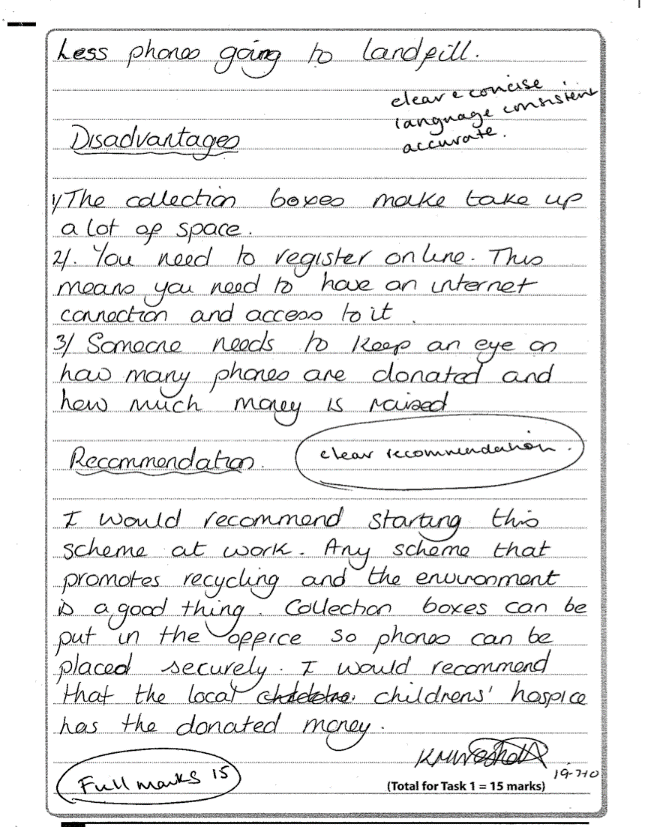 Less phones going to landfill.
clear & concise
language consistent
accurate.
Disadvantages
1/ The collection boxes make take up
a lot of space.
2/. You need to register online. This
means you need to have an internet
connection and access to it.
3/ Someone needs to keep an eye on
how many phones are donated and
how much money is raised
Recommendation.
clear recommendation.
I would recommend starting this
scheme at work. Any scheme that
promotes recycling and the environment
is a good thing. Collection boxes can be
put in the office so phones can be
placed securely. I would recommend
that the local childrens' hospice
has the donated money.
19-7-10
Full marks 15
(Total for Task 1 = 15 marks)